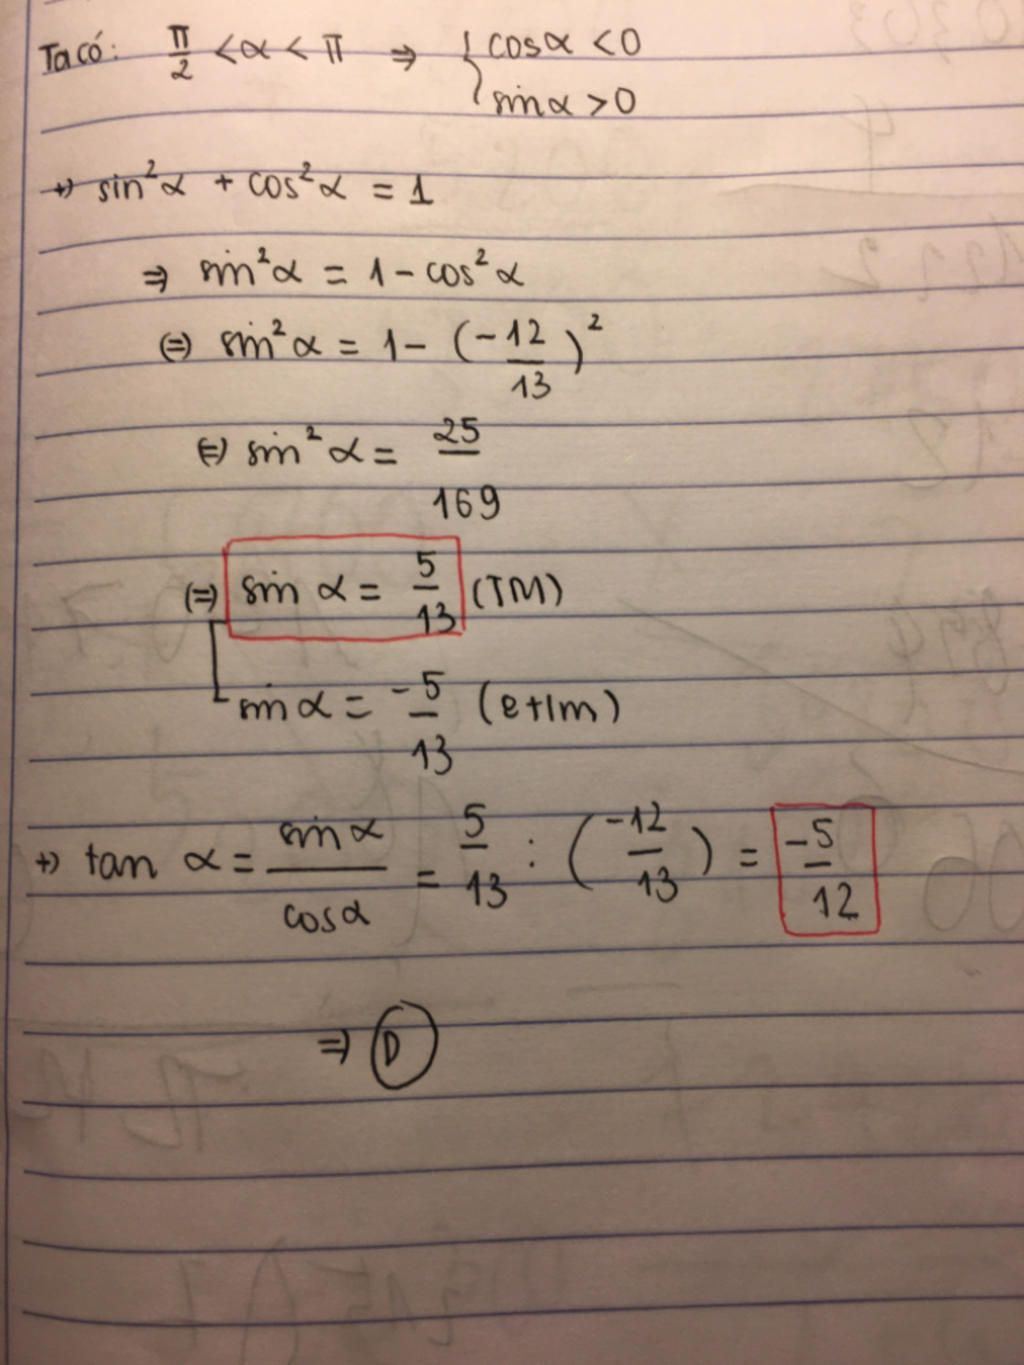 Ta có: π/2 < α < π ⇒ { cosα < 0
sinα > 0
+) sin²α + cos²α = 1
⇒ sin²α = 1 - cos²α
(=) sin²α = 1 - (-12/13)²
(=) sin²α = 25/169
(=) sin α = 5/13 (TM)
sin α = -5/13 (etlm)
+) tan α = sinα/cosα = 5/13 : (-12/13) = -5/12
⇒ D